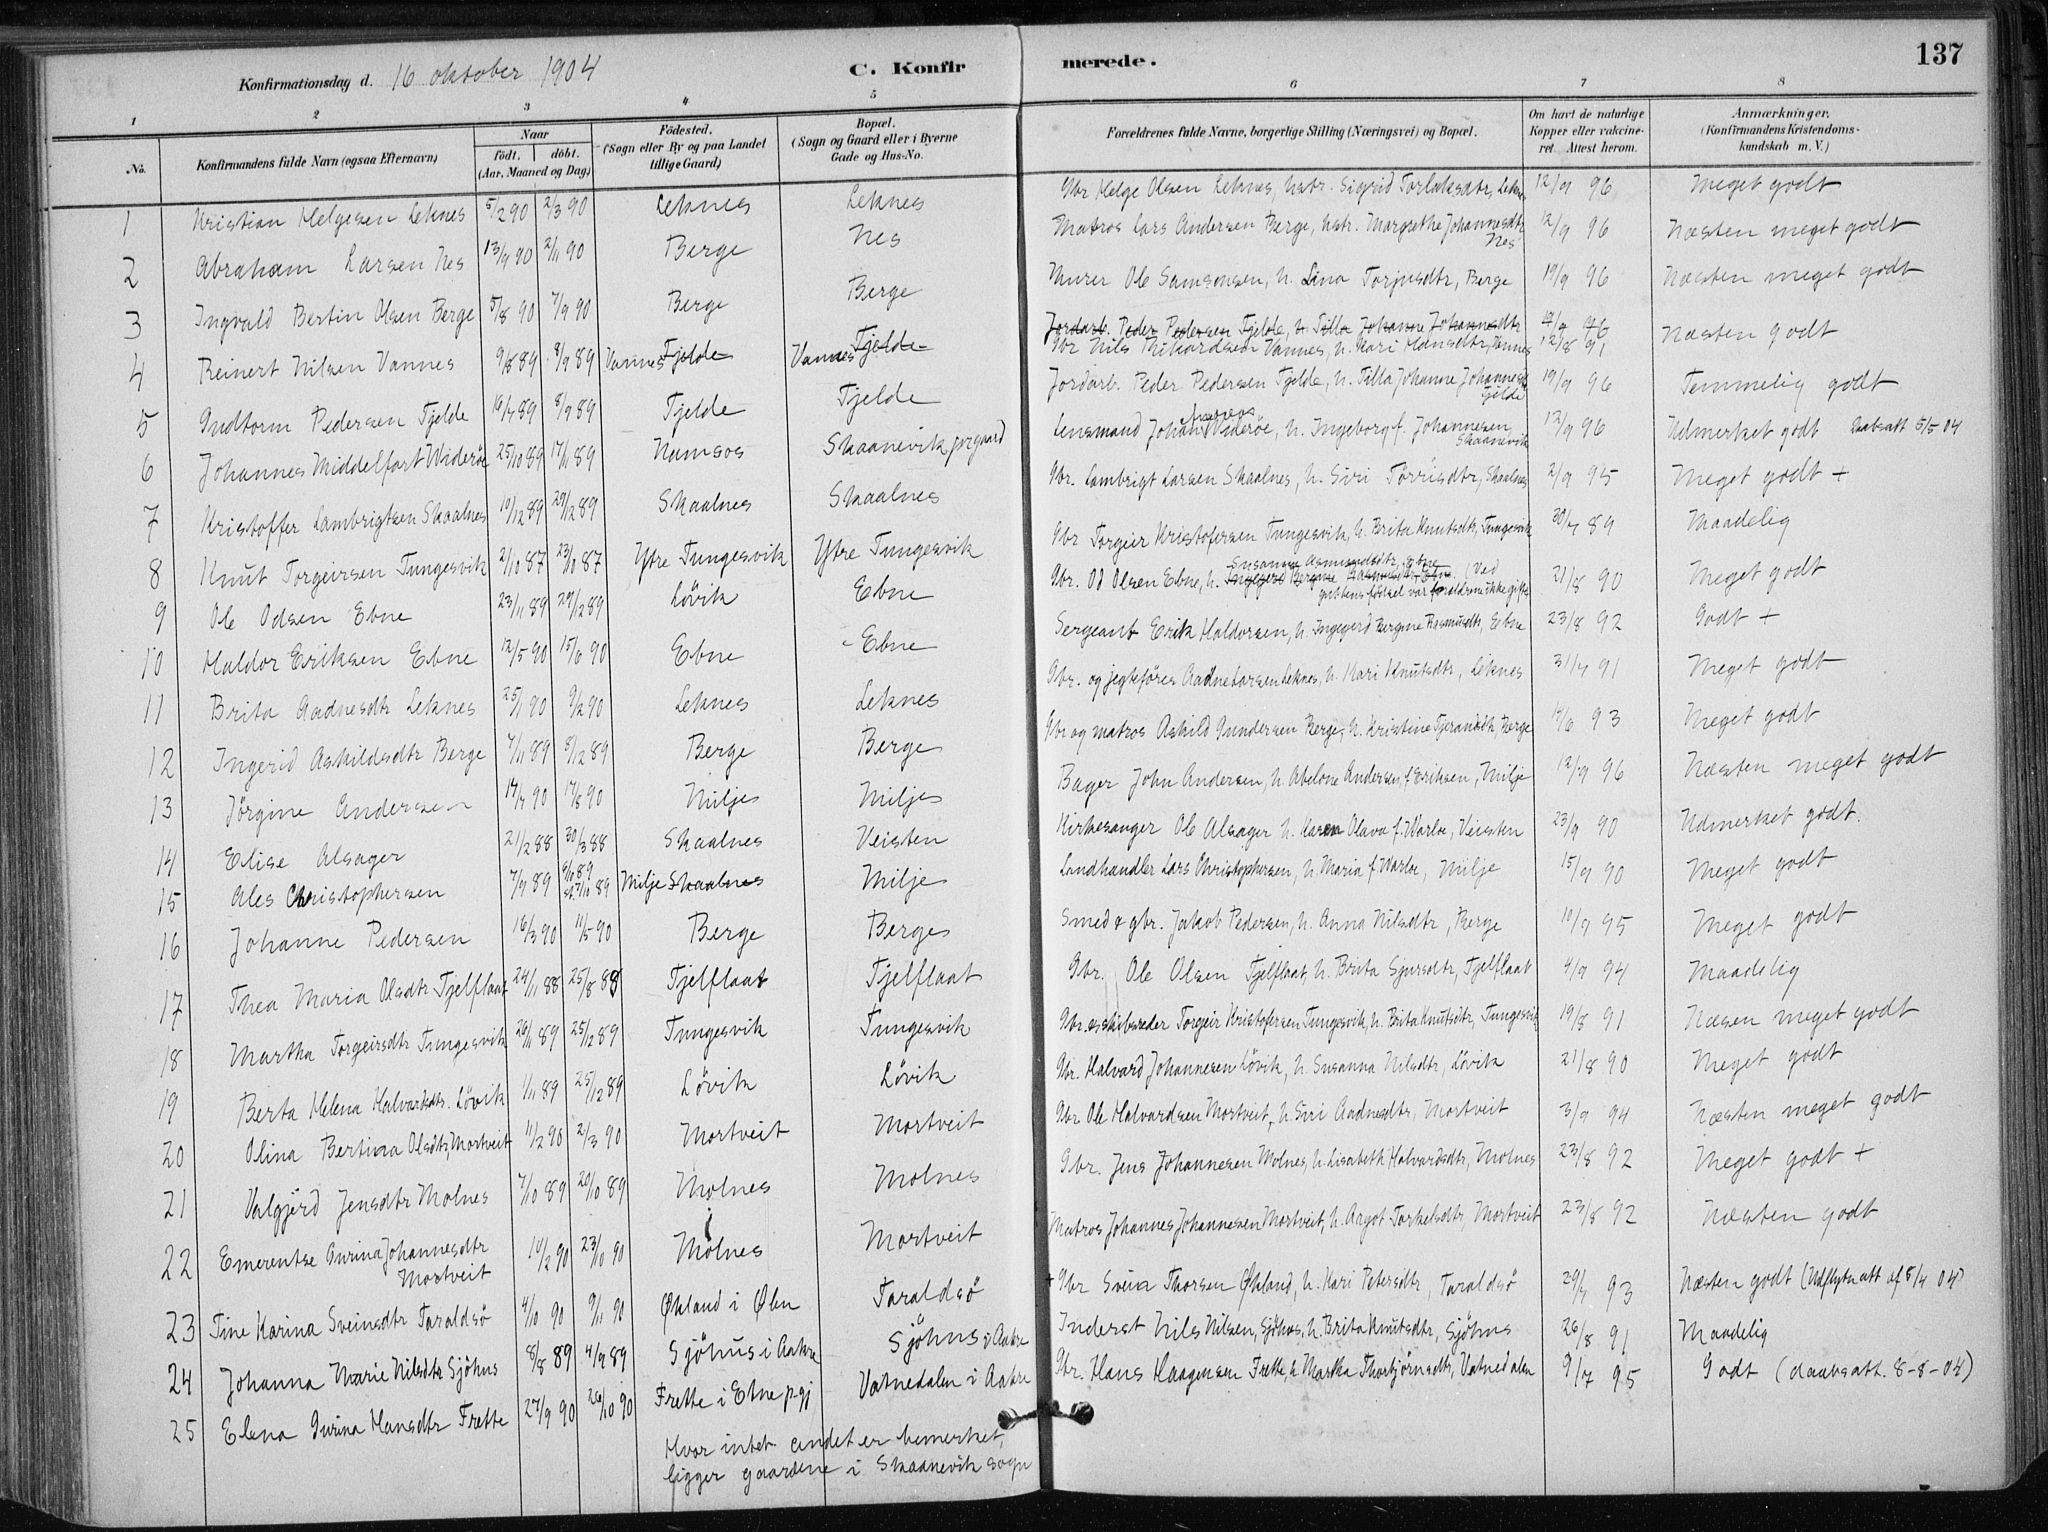 137
Konfirmationsdag d. 16 oktober 1904 C. Konfirmerede.
1 2 3 4 5 6 7 8
No. Konfirmandens fulde Navn (ogsaa Efternavn) Naar födt. döbt. (Aar, Maaned og Dag) Födested. (Sogn eller By og paa Landet tillige Gaard) Bopæl. (Sogn og Gaard eller i Byerne Gade og Hus-No. Forældrenes fulde Navne, borgerlige Stilling (Næringsvei) og Bopæl. Om havt de naturlige Kopper eller vakcineret. Attest herom. Anmærkninger. (Konfirmandens Kristendomskundskab m. V.)
1 Kristian Helgesen Leknes 5/2 90 2/3 90 Leknes Leknes Gbr Helge Olsen Leknes, hstr. Sigrid Torlaksdtr, Leknes 12/9 96 Meget godt
2 Abraham Larsen Nes 13/9 90 2/11 90 Berge Nes Matros Lars Andersen Berge, hstr. Margrethe Johannesdtr Nes 12/9 96 Næsten meget godt
3 Ingvald Bertin Olsen Berge 5/8 90 7/9 90 Berge Berge Murer Ole Samsonsen, h. Lina Torjusdtr, Berge 19/9 96 Næsten meget godt
Jordarb. Peder Pedersen Tjelde, h. Tilla Johanne Johannesdtr 19/9 96
4 Reinert Nilsen Vannes 9/8 89 8/9 89 Vannes Tjelde Vannes Tjelde Gbr Nils Rikardsen Vannes, h. Kari Hansdtr, Vannes 12/8 91 Næsten godt
5 Gudtorm Pedersen Tjelde 16/7 89 8/9 89 Tjelde Tjelde Jordarb. Peder Pedersen Tjelde, h. Tilla Johanne Johannesdtr Tjelde 19/9 96 Temmelig godt
6 Johannes Middelfart Widerøe 25/10 89 17/11 89 Namsos Skaanevik prgaard Lensmand Johan Widerøe, h. Ingeborg f. Johannesen Skaanevik 12/9 96 Udmerket godt Daabsatt 5/5 04
7 Kristoffer Lambrigtsen Skaalnes 10/12 89 29/12 89 Skaalnes Skaalnes Gbr. Lambrigt Larsen Skaalnes, h. Siri Torrisdtr, Skaalnes 2/9 95 Meget godt +
8 Knut Torgeirsen Tungesvik 2/10 87 23/10 87 Ytre Tungesvik Ytre Tungesvik Gbr Torgeir Kristofersen Tungesvik, h. Brita Knutsdtr, Tungesvik 30/7 89 Maadelig
9 Ole Odsen Ebne 23/11 89 29/12 89 Lövik Ebne Gbr. Od Olsen Ebne, h. Susanna Asmundsdtr, Ebne Ingegerd Bergine Rasmusdtr, Ebne. (Ved guttens fødsel var forældrene ikke gifte 21/8 90 Meget godt
10 Haldor Eriksen Ebne 12/5 90 15/6 90 Ebne Ebne Sergeant Erik Haldorsen, h. Ingegerd Bergine Rasmusdtr, Ebne 23/8 92 Godt +
11 Brita Aadnesdtr Leknes 25/1 90 9/2 90 Leknes Leknes Gbr. og jegtefører Aadne Larsen Leknes, h. Kari Knutsdtr, Leknes 31/7 91 Meget godt
12 Ingerid Askildsdtr Berge 7/11 89 8/12 89 Berge Berge Gbr og matros Askild Gundersen Berge, h. Kristine Tjerandsdtr, Berge 14/6 93 Meget godt
13 Jörgine Andersen 14/7 90 17/8 90 Milje Milje Bager John Andersen, h. Abelone Andersen, f. Eriksen, Milje 12/9 96 Næsten meget godt
14 Elise Alsager 21/2 88 30/3 88 Skaalnes Veisten Kirkesanger Ole Alsager h. Karen Olava f. Warloe, Veisten 23/9 90 Udmerket godt.
15 Ales Christophersen 7/9 89 8/9 89 st. 27/10 89 Milje Skaalnes Milje Landhandler Lars Christophersen, h. Maria f. Warloe, Milje 15/9 90 Meget godt
16 Johanne Pedersen 16/3 90 11/5 90 Berge Berge Smed & gbr. Jakob Pedersen, h. Anna Nilsdtr, Berge 10/9 95 Meget godt
17 Thea Maria Olsdtr Tjelflaat 24/11 88 25/8 88 Tjelflaat Tjelflaat Gbr. Ole Olsen Tjelflaat h. Brita Sjursdtr, Tjelflaat 4/9 94 Maadelig
18 Martha Torgeirsdtr Tungesvik 26/11 89 25/12 89 Tungesvik Tungesvik Gbr. & skibsreder Torgeir Kristofersen Tungesvik, h. Brita Knutsdtr, Tungesvik 19/8 91 Næsen meget godt
19 Berta Helena Halvardsdtr. Lövik 1/11 89 25/12 89 Lövik Lövik Gbr. Halvard Johannesen Lövik, h. Susanna Nilsdtr, Lövik 21/8 90 Meget godt
20 Olina Bertina Olsdtr, Mortveit 11/2 90 2/3 90 Mortveit Mortveit Gbr. Ole Halvardsen Mortveit, h. Siri Aadnesdtr, Mortveit 3/9 94 Næsten meget godt
21 Valgjerd Jensdtr Molnes 7/10 89 20/10 89 Molnes Molnes Gbr. Jens Johannesen Molnes, h. Lisabeth Halvardsdtr, Molnes 23/8 92 Meget godt +
22 Emerentse Gurina Johannesdtr Mortveit 14/2 90 23/10 90 Molnes Mortveit Matros Johannes Johannesen Mortveit, h. Aagot Torkelsdtr, Mortveit 23/8 92 Næsten godt
23 Tine Karina Sveinsdtr Taraldsö 4/10 90 9/11 90 Økland i Ølen Taraldsö Gbr Svein Thorsen Økland, h. Kari Petersdtr, Taraldsö 29/7 93 Næsten godt (Udflytn.att af 8/4 04)
24 Johanna Marie Nilsdtr Sjöhus 8/8 89 4/9 89 Sjöhus i Aakre Sjöhus i Aakre Inderst Nils Nilsen, Sjöhus, h. Brita Knutsdtr, Sjöhus 26/8 91 Maadelig
25 Elena Gurina Hansdtr Frette 27/9 90 26/10 90 Frette i Etne pgj Vatnedalen i Aakre Gbr. Hans Haagensen Frette, h. Martha Thorbjörnsdtr, Vatnedalen 9/7 95 Godt (daabsatt. 8-8-04)
Hvor intet andet er bemerket,
ligger gaardene i Skaanevik sogn